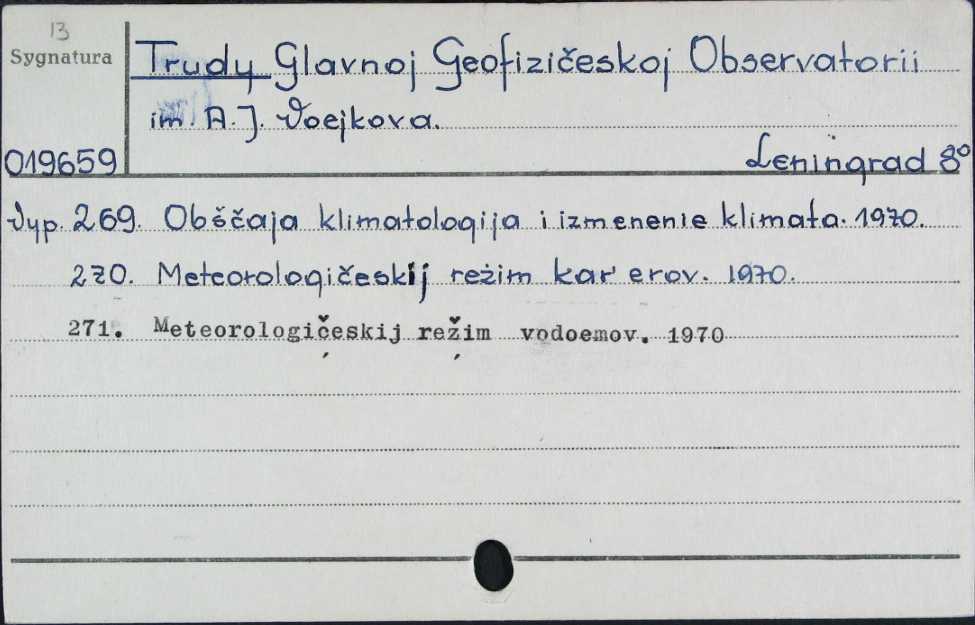 13
Sygnatura
Trudy Glavnoj Geofizičeskoj Observatorii
im. A. J. Voejkova.
019659
Leningrad 8°
Vyp. 269. Obščaja klimatologija i izmenenie klimata. 1970.
270. Meteorologičeskij režim kar'erov. 1970.
271. Meteorologičeskij režim vodoemov. 1970